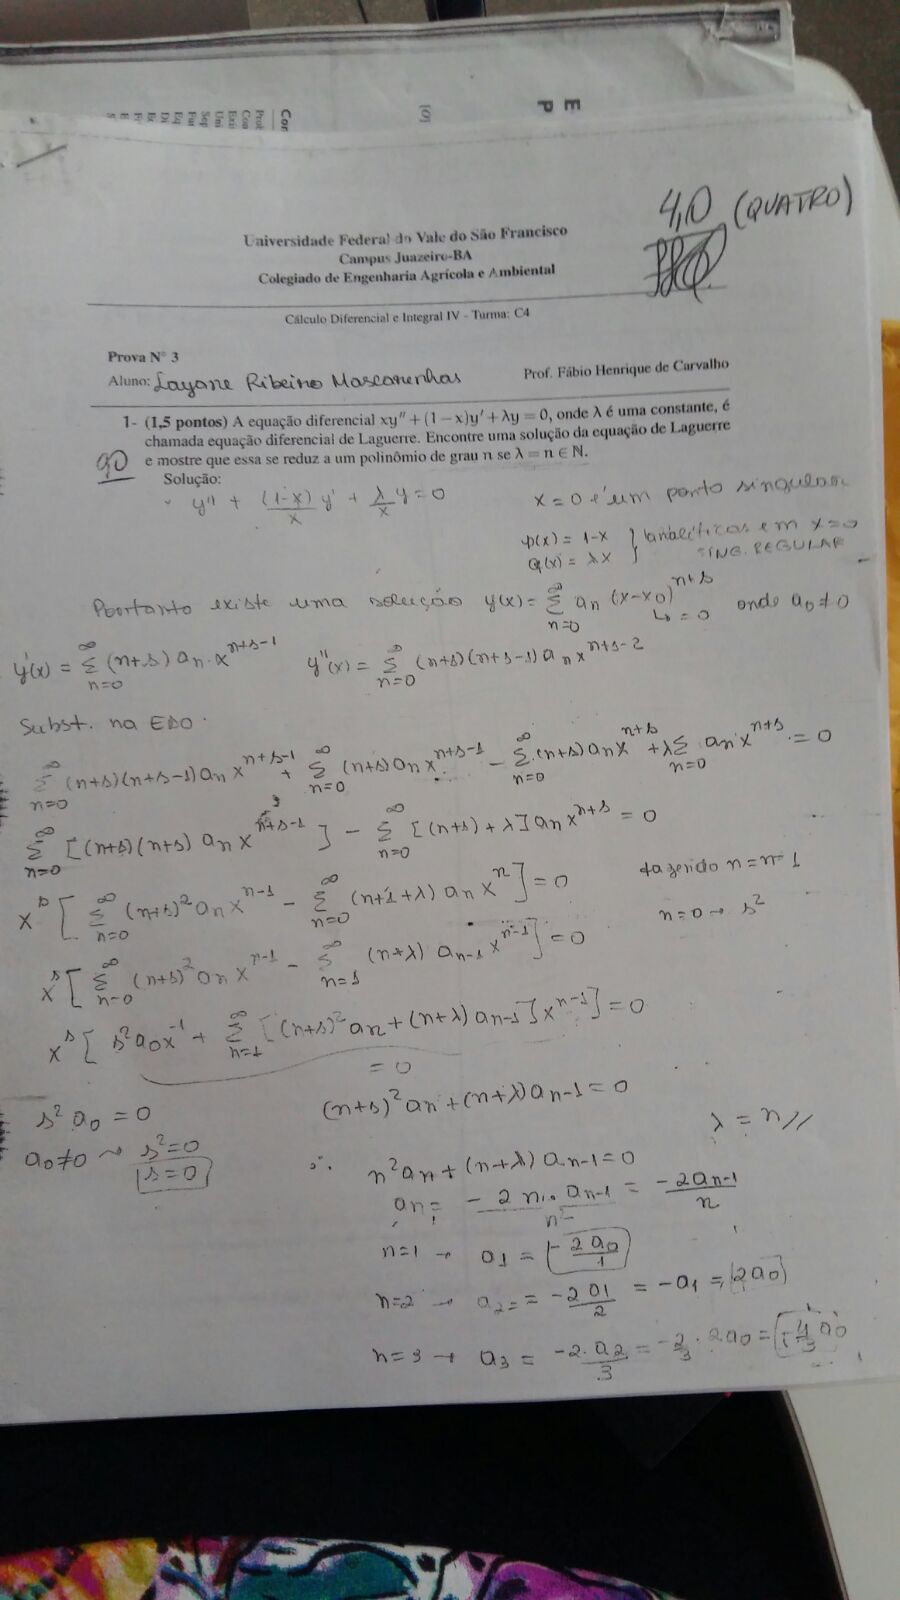 E
P
Cor
4,0 (QUATRO)
Universidade Federal do Vale do São Francisco
Campus Juazeiro-BA
Colegiado de Engenharia Agrícola e Ambiental
Cálculo Diferencial e Integral IV - Turma: C4
Prova N° 3
Aluno: Layane Ribeiro Mascarenhas Prof. Fábio Henrique de Carvalho
1- (1,5 pontos) A equação diferencial xy'' + (1 − x)y' + λy = 0, onde λ é uma constante, é
chamada equação diferencial de Laguerre. Encontre uma solução da equação de Laguerre
e mostre que essa se reduz a um polinômio de grau n se λ = n ∈ ℕ.
Solução:
y'' + (1-x)/x y' + λ/x y = 0 x = 0 é um ponto singular
p(x) = 1-x } analíticas em x=0
q(x) = λx } SING. REGULAR
Portanto existe uma solução y(x) = ∑_{n=0}^∞ an (x-x0)^{n+s} ↳ = 0 onde a0 ≠ 0
y'(x) = ∑_{n=0}^∞ (n+s) an · x^{n+s-1} y''(x) = ∑_{n=0}^∞ (n+s)(n+s-1) an x^{n+s-2}
Subst. na EDO.
∑_{n=0}^∞ (n+s)(n+s-1) an x^{n+s-1} + ∑_{n=0}^∞ (n+s) an x^{n+s-1} - ∑_{n=0}^∞ (n+s) an x^{n+s} + λ∑_{n=0} an x^{n+s} = 0
∑_{n=0}^∞ [(n+s)(n+s) an x^{n+s-1}] - ∑_{n=0}^∞ [(n+s) + λ] an x^{n+s} = 0
x^s [∑_{n=0}^∞ (n+s)² an x^{n-1} - ∑_{n=0}^∞ (n+1+λ) an x^n] = 0 fazendo n = n-1
n=0 → s²
x^s [∑_{n=0}^∞ (n+s)² an x^{n-1} - ∑_{n=1}^∞ (n+λ) an-1 x^{n-1}] = 0
x^s [s² a0 x^{-1} + ∑_{n=1}^∞ [(n+s)² an + (n+λ) an-1] x^{n-1}] = 0
= 0
s² a0 = 0 (n+s)² an + (n+λ) an-1 = 0
a0 ≠ 0 → s² = 0 λ = n //
s = 0 ∴ n² an + (n+λ) an-1 = 0
an = - 2n · an-1 / n² = -2an-1 / n
n=1 → a1 = -2a0/1
n=2 → a2 = = -2a1/2 = -a1 = 2a0
n=3 → a3 = -2·a2/3 = -2/3 · 2a0 = -4/3 a0